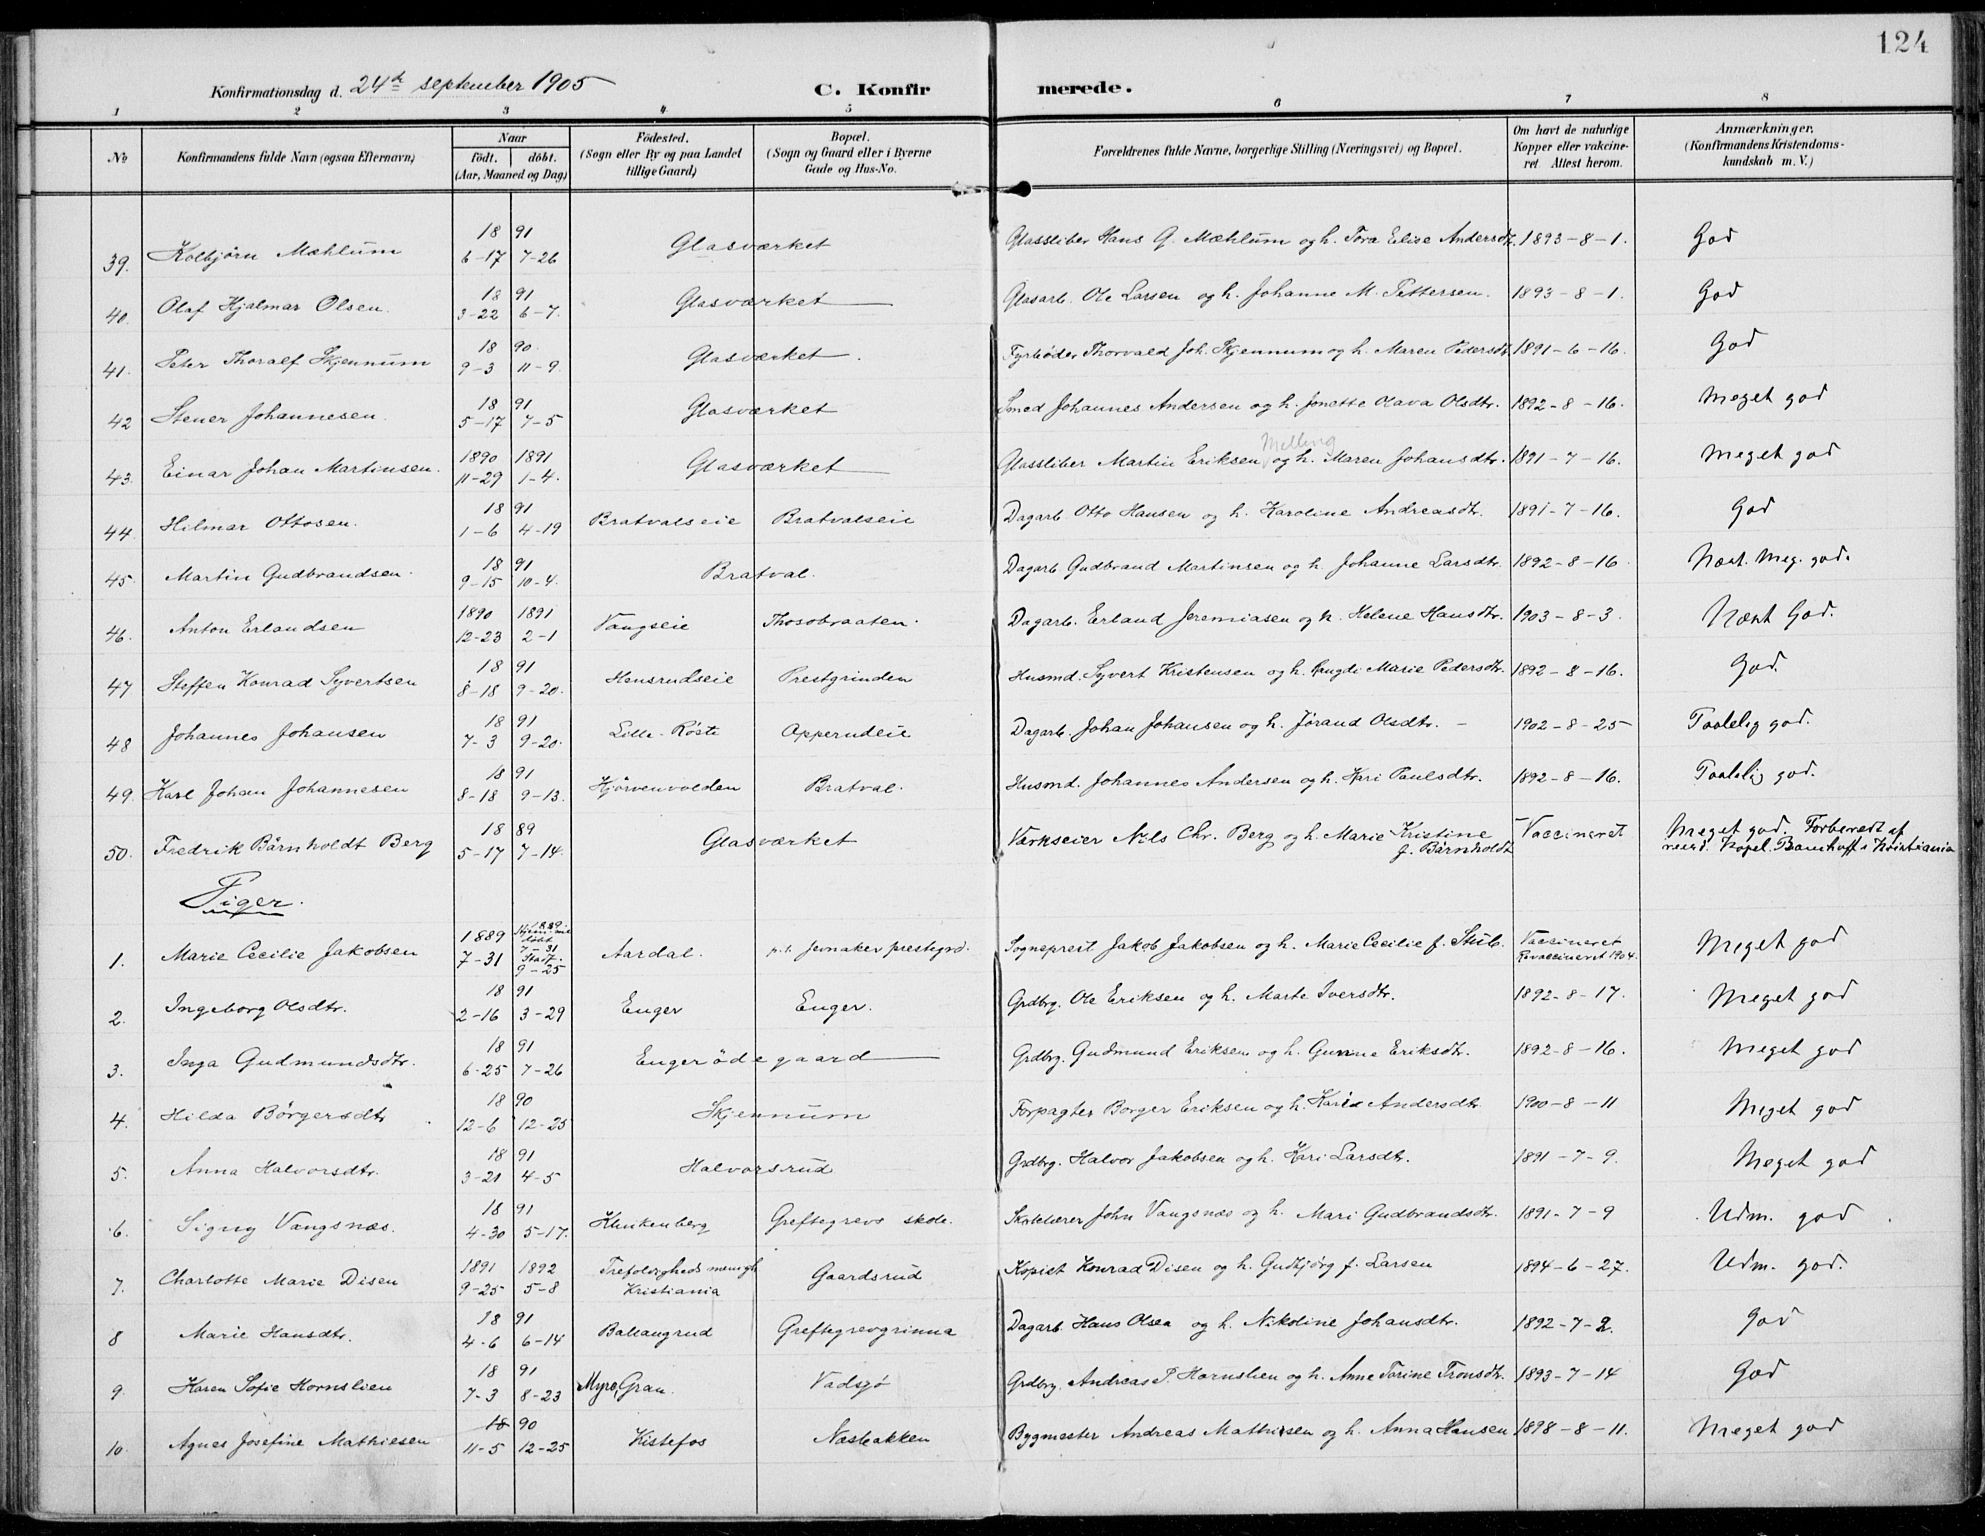 124
Konfirmationsdag d. 24de september 1905 C. Konfirmerede.
1 2 3 4 5 6 7 8
No Konfirmandens fulde Navn (ogsaa Efternavn) Naar födt. döbt. (Aar, Maaned og Dag) Födested. (Sogn eller By og paa Landet tillige Gaard) Bopæl. (Sogn og Gaard eller i Byerne Gade og Hus-No. Forældrenes fulde Navne, borgerlige Stilling (Næringsvei) og Bopæl. Om havt de naturlige Kopper eller vakcineret Attest herom. Anmærkninger. (Konfirmandens Kristendomskundskab m. V.)
39. Kolbjørn Mæhlum 1891 6-17 7-26 Glasværket Glassliber Hans G. Mæhlum og h. Tora Elise Andersdt. 1893-8-1. God
40. Olaf Hjalmar Olsen. 1891 3-22 6-7. Glasværket Glasarb. Ole Larsen og h. Johanne M. Pettersen. 1893-8-1. God
41. Peter Thoralf Skjennum 1890. 9-3 11-9. Glasværket. Fyrbøder Thorvald Joh. Skjennum og h. Maren Pedersdt. 1891-6-16. God
42 Stener Johannesen. 1891 5-17 7-5 Glasværket Smed Johannes Andersen og h. Jonette Olava Olsdtr. 1892-8-16. Meget god
43. Einar Johan Martinsen. 1890 1891 11-29 1-4. Glasværket Glassliber Martin Eriksen Melling og h. Maren Johansdtr. 1891-7-16. Meget god
44. Hilmar Ottosen. 1891 1-6 4-19 Bratvalseie Bratvalseie Dagarb. Otto Hansen og h. Karoline Andreasdtr. 1891-7-16. God
45. Martin Gudbrandsen. 1891 9-15 10-4. Bratval. Dagarb. Gudbrand Martinsen og h. Johanne Larsdtr. 1892-8-16. Næst. Meg. god.
46. Anton Erlandsen 1890 1891 12-23 2-1 Vangseie Thosobraaten. Dagarb. Erland Jeremiasen og h. Helene Hansdtr. 1903-8-3. Næst God.
47 Steffen Konrad Syvertsen 1891 8-18 9-20. Hensrudseie Prestgrinden Husmd. Syvert Kristensen og h. Marie Pedersdtr. 1892-8-16. God.
48 Johannes Johansen 1891 7-3 9-20. Lille-Røste Opperudeie Dagarb. Johan Johansen og h. Jørand Olsdtr. - 1902-8-25 Taalelig god.
49. Karl Johan Johannesen 1891 8-18 9-13. Hjörvenvolden Bratval. Husmd. Johannes Andersen og h. Kari Paulsdtr. 1892-8-16. Taalelig god.
50. Fredrik Bärnholdt Berg 1889 5-17 7-14. Glasværket Værkseier Nils Chr. Berg og h. Marie Kristine f. Bärnholdt Vaccineret Meget god. Forberedt af resid. Kapel. i Kristiania
Piger.
1. Marie Cecilie Jakobsen 1889 7-31 Hjemmedøbt 7-31 Stadf. 9-25 Aardal. p.t. Jevnaker prestegrd. Sogneprest Jakob Jakobsen og h. Marie Cecilie f. Stub. Vaccineret Revaccineret 1904. Meget god
2. Ingeborg Olsdtr. 1891 2-16 3-29 Enger Enger. Grdbrg. Ole Eriksen og h. Marte Iversdtr. 1892-8-17. Meget god
3. Inga Gudmundsdtr. 1891 6-25 7-26 Engerödegaard Grdbrg. Gudmund Eriksen og h. Gunne Eriksdtr. 1892-8-16. Meget god
4. Hilda Börgersdtr 1890 12-6 12-25 Skjennum Forpagter Borger Eriksen og h. Karin Andersdtr. 1900-8-11 Meget god
5. Anna Halvorsdtr. 1891 3-21 4-5 Halvorsrud Grdbrg. Halvor Jakobsen og h. Kari Larsdtr. 1891-7-9. Meget god
6. Signy Vangsnæs. 1891 4-30 5-17. Klinkenberg Greftegrevs skole. Skolelærer John Vangsnæs og h. Mari Gudbrandsdtr. 1891-7-9 Udm. god
7. Charlotte Marie Disen 1891 1892 9-25 5-8 Trefoldigheds menigh. Kristiania Gaardsrud Kopist Konrad Disen og h. Gudbjørg f. Larsen 1894-6-27. Udm. god.
8 Marie Hansdtr. 1891 4-6 6-14 Ballangrud Greftegrevgrinna Dagarb. Hans Olsen og h. Nikoline Johansdtr. 1892-7-2. God
9. Karen Sofie Hornslien 1891 7-3 8-23 Myre, Gran. Vadsjø Grdbrg. Andreas P. Hornslien og h. Anne Torine Tronsdtr. 1893-7-14 God
10. Agnes Josefine Mathiesen 1890 11-5 12-25 Kistefos Næsbakken Bygmester Andreas Mathisen og h. Anna Hansen 1898-8-11. Meget god